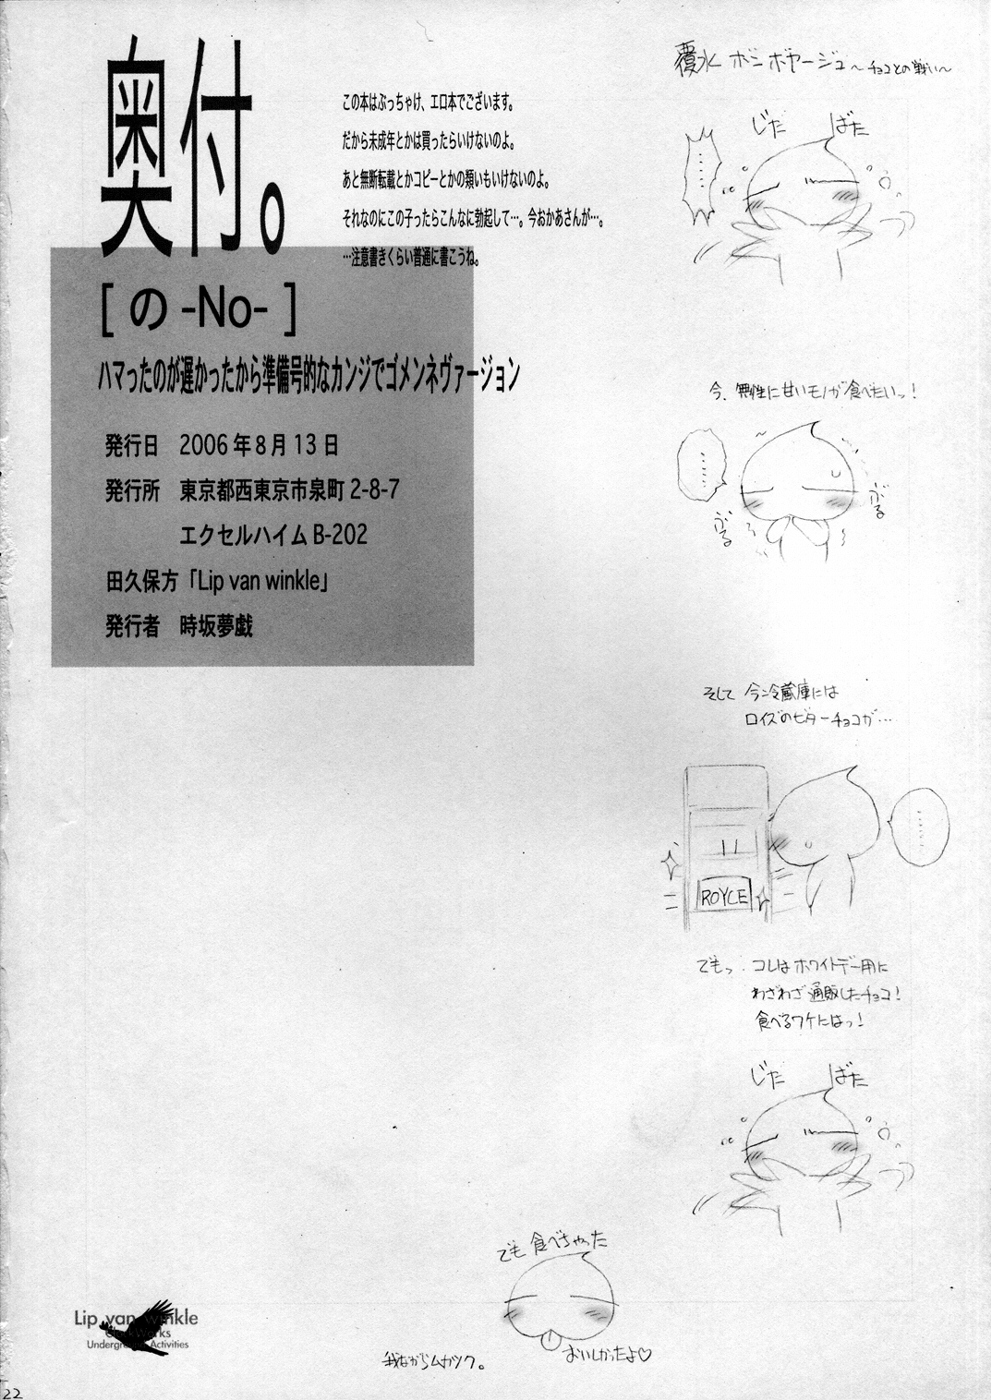 奥付。
この本はぶっちゃけ、エロ本でございます。
だから未成年とかは買ったらいけないのよ。
あと無断転載とかコピーとかの類いもいけないのよ。
それなのにこの子ったらこんなに勃起して…。今おかあさんが…。
…注意書きくらい普通に書こうね。
[ の -No- ]
ハマったのが遅かったから準備号的なカンジでゴメンネヴァージョン
発行日 2006年8月13日
発行所 東京都西東京市泉町 2-8-7
エクセルハイム B-202
田久保方「Lip van winkle」
発行者 時坂夢戯
覆水 ボンボヤージュ ～チョコとの戦い～
じた ばた
……
今、無性に甘いモノが食べたいっ！
……
ぷる
ぷる
そして 今冷蔵庫には
ロイズのビターチョコが…
……
ROYCE
でもっ、コレはホワイトデー用に
わざわざ通販したチョコ！
食べるワケにはっ！
じた ばた
でも 食べちゃった
おいしかったよ♡
我ながらムカツク。
Lip van winkle
Underground Activities
22